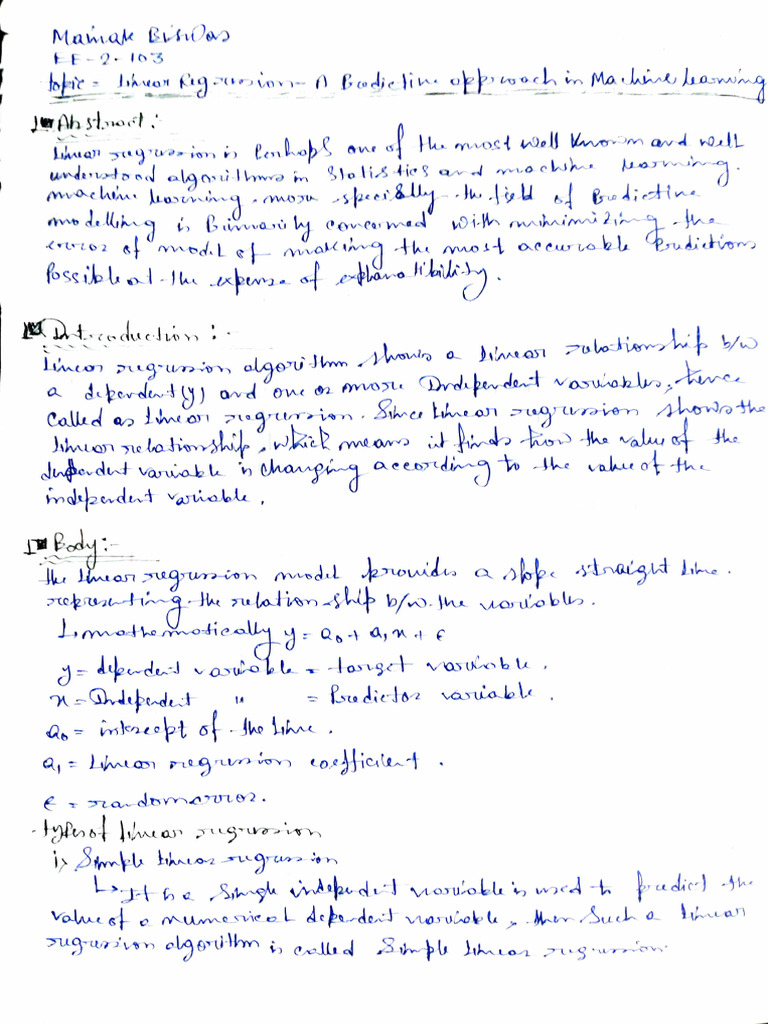 Mainak Biswas
EE-2-103
Topic = Linear Regression - A Predictive approach in Machine Learning
Abstract :
Linear regression is Perhaps one of the most well known and well
understood algorithms in Statistics and machine learning.
machine learning, more specially the field of Predictive
modelling is Primarily concerned with minimizing the
error of model of making the most accurable Predictions
Possible at the expense of explanatibility.
Introduction :-
Linear regression algorithm shows a linear relationship b/w
a dependent(y) and one or more Independent variables, hence
called as linear regression. Since linear regression shows the
linear relationship, which means it finds how the value of the
dependent variable is changing according to the value of the
independent variable.
Body :-
The linear regression model provides a slope straight line
representing the relation-ship b/w the variables.
mathematically y = a₀ + a₁x + ε
y = dependent variable = target variable.
x = Independent " = Predictor variable.
a₀ = intercept of the line.
a₁ = Linear regression coefficient.
ε = random error.
types of linear regression
i, Simple linear regression
↳ If a Single independent variable is used to predict the
value of a numerical dependent variable, then Such a linear
regression algorithm is called Simple linear regression.